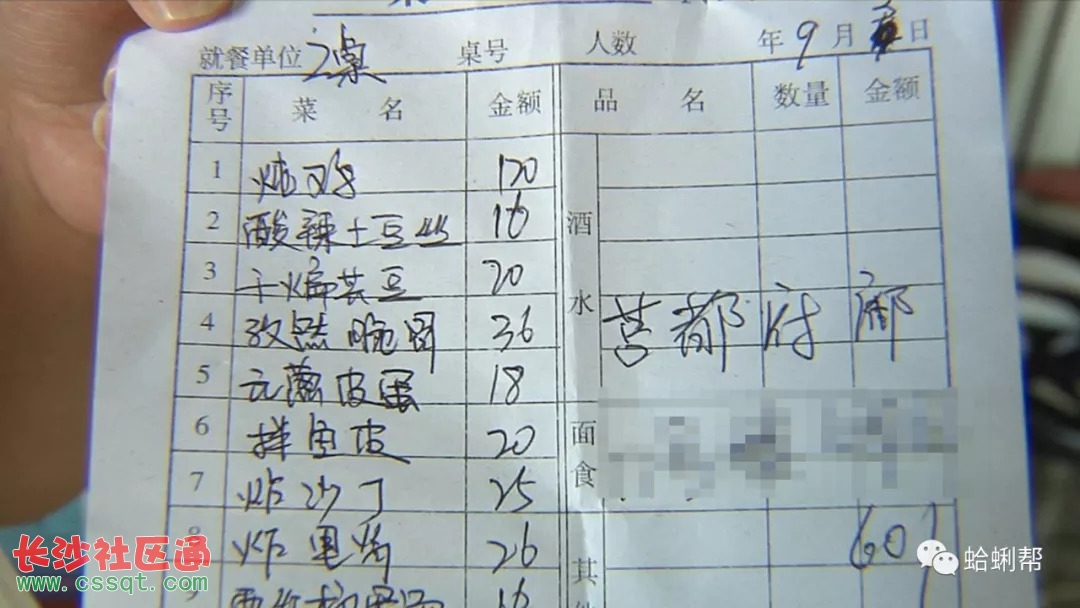 就餐单位 2桌 桌号 人数 年 9 月 日
序号 菜名 金额 品名 数量 金额
1 炖鸡 120
2 酸辣土豆丝 16
3 干煸芸豆 20
酒水
4 孜然 36
营都府邸
5 皮蛋 18
6 拌鱼皮 20
面食
7 炸沙丁 25
8 炸 26 60
9 16
其他
长沙社区通
www.cssqt.com
蛤蜊帮